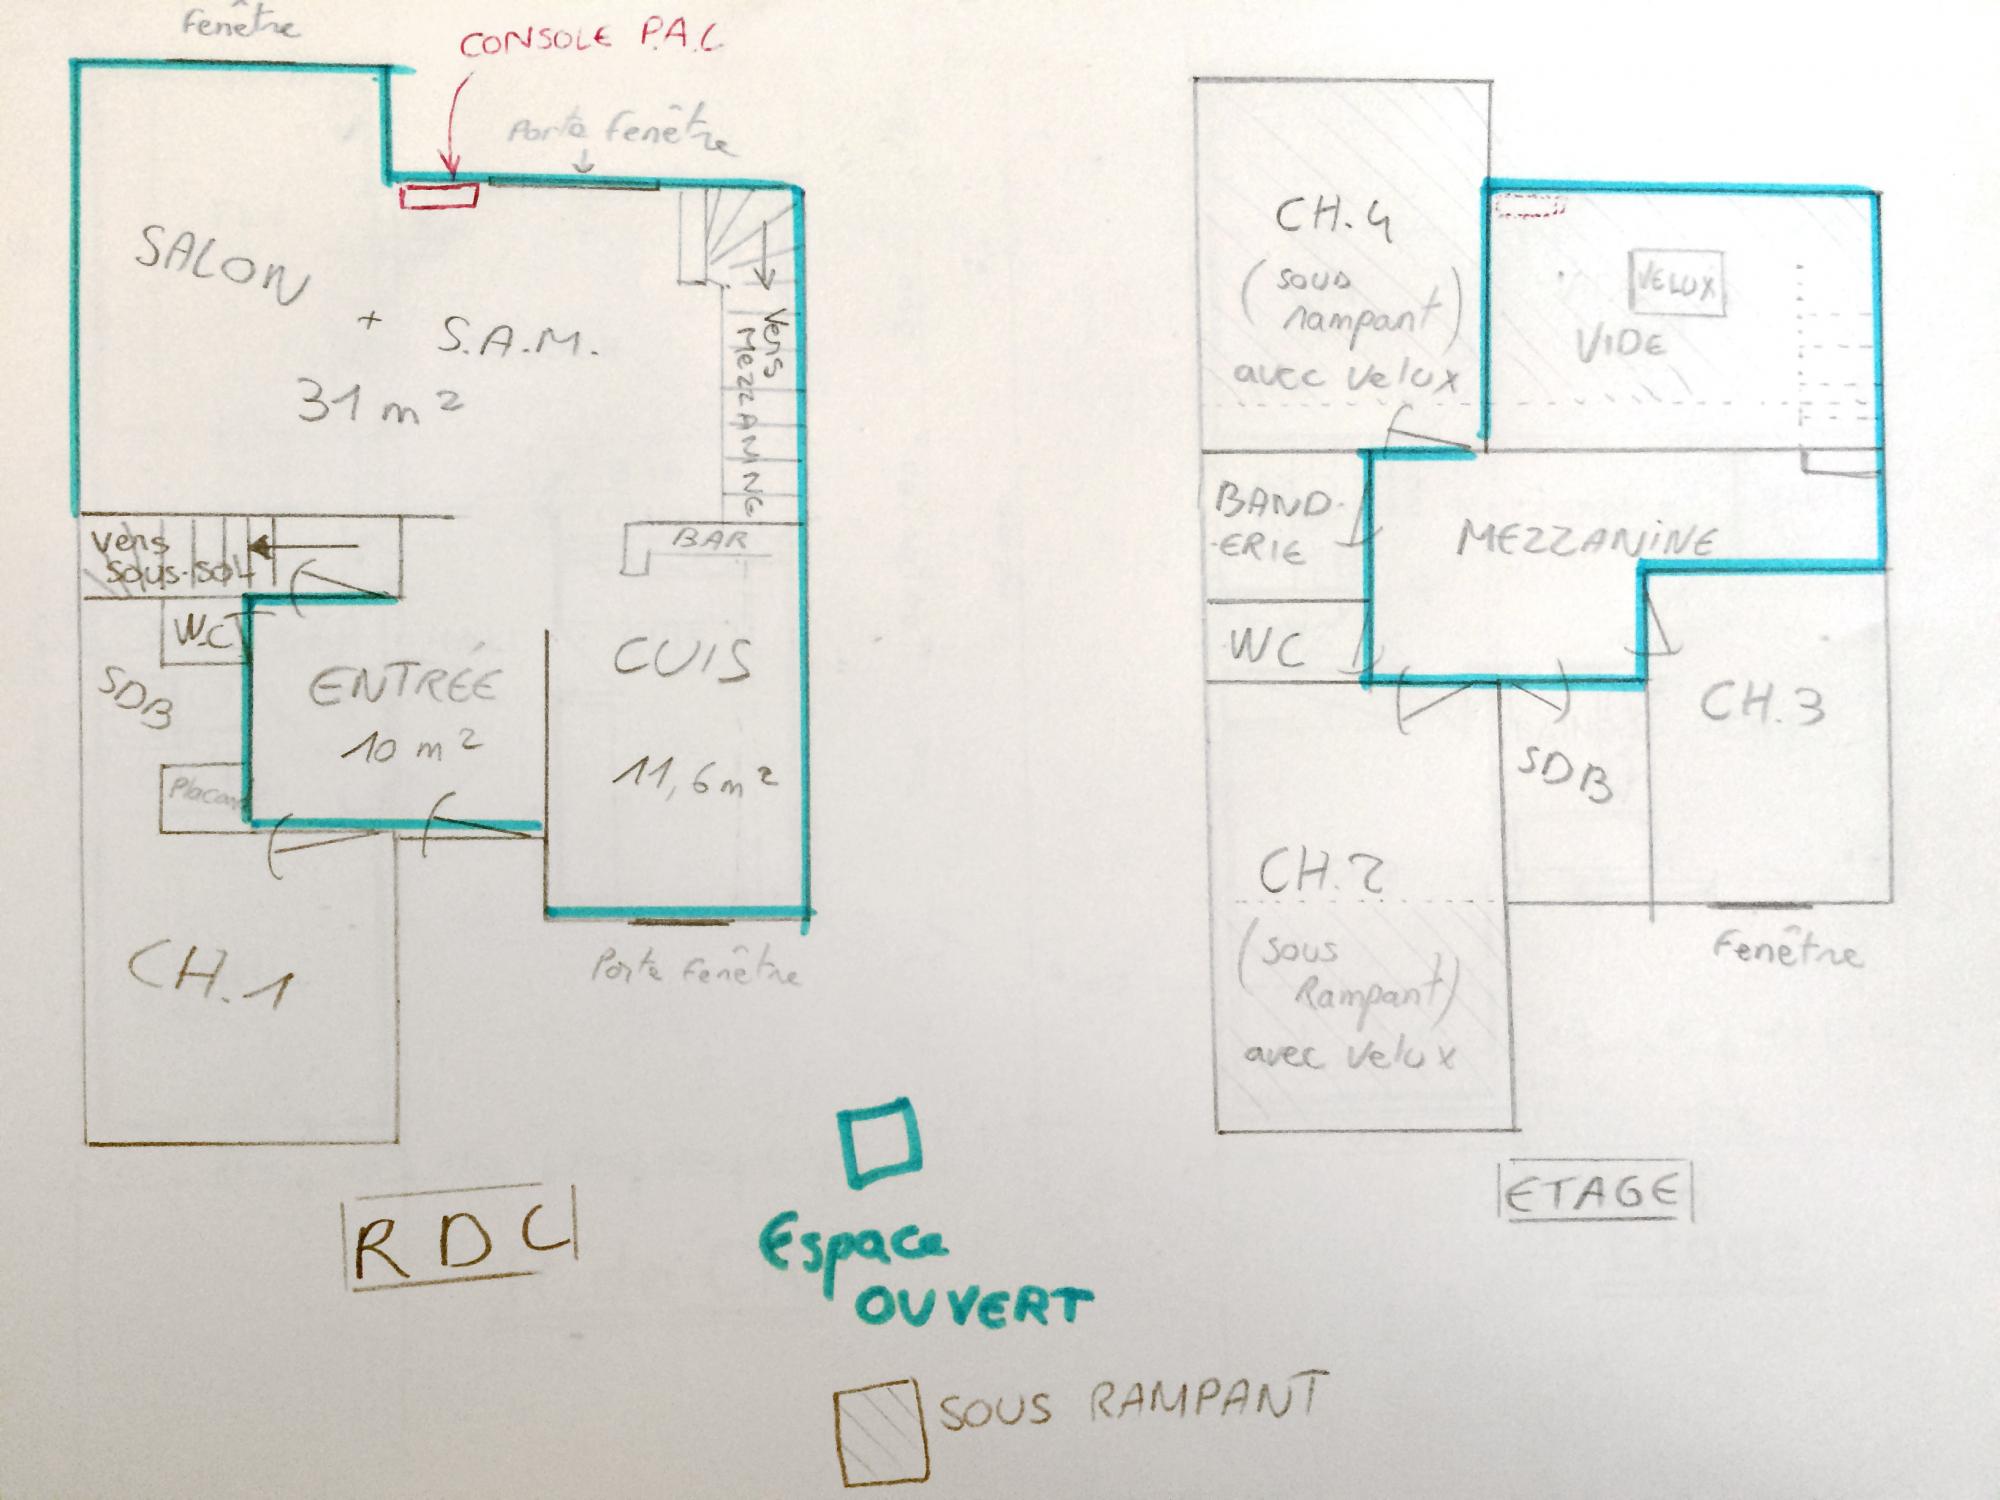 Fenêtre
CONSOLE P.A.C
Porte fenêtre
SALON
+ S.A.M.
31 m²
Vers
MEZZANINE
Vers
sous-sol
BAR
WC
SDB
ENTRÉE
10 m²
CUIS
11,6 m²
Placard
CH.1
Porte Fenêtre
RDC
CH.4
(sous
rampant)
avec velux
VELUX
VIDE
BAND-
-ERIE
MEZZANINE
WC
CH.3
SDB
CH.2
(sous
Rampant)
avec velux
Fenêtre
ETAGE
Espace
OUVERT
SOUS RAMPANT